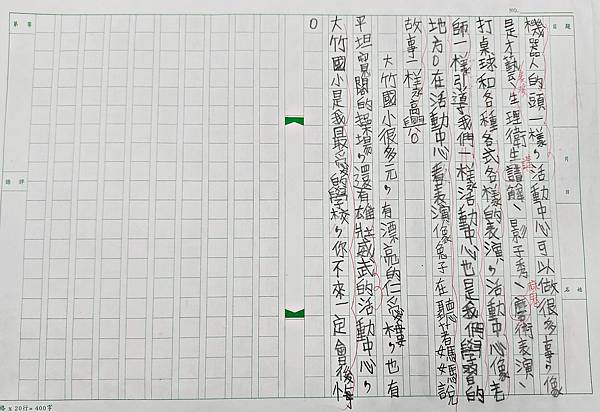 NO.
題目
月
日
姓名
機器人的頭一樣，活動中心可以做很多事，像
是才藝表演、生理衛生講解、影子秀、魔術表演、
打桌球和各種各式各樣的表演，活動中心像老
師一樣引導我們一樣活動中心也是我們學習的
地方。在活動中心看表演像兔子在聽著媽媽說
故事一樣高興。
大竹國小很多元，有漂亮的仁愛樓，也有
平坦寬闊的操場，還有雄壯威武的活動中心，
大竹國小是我最愛的學校，你不來一定會後悔
。
評語
第 頁
格 x 20行= 400字